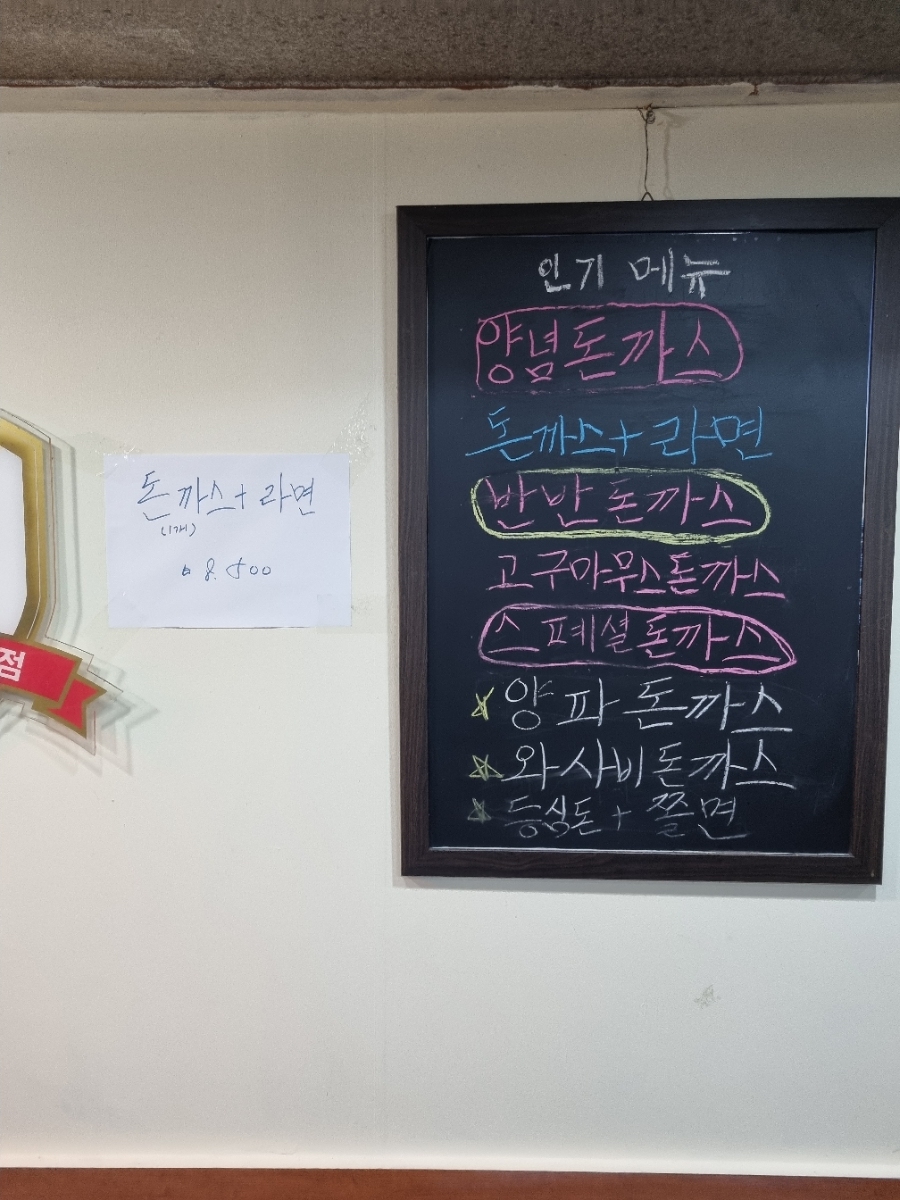 인기 메뉴
양념돈까스
돈까스+라면
반반돈까스
고구마무스돈까스
스페셜돈까스
양파돈까스
와사비돈까스
등심돈+쫄면
돈까스+라면
(1개)
8.500
점